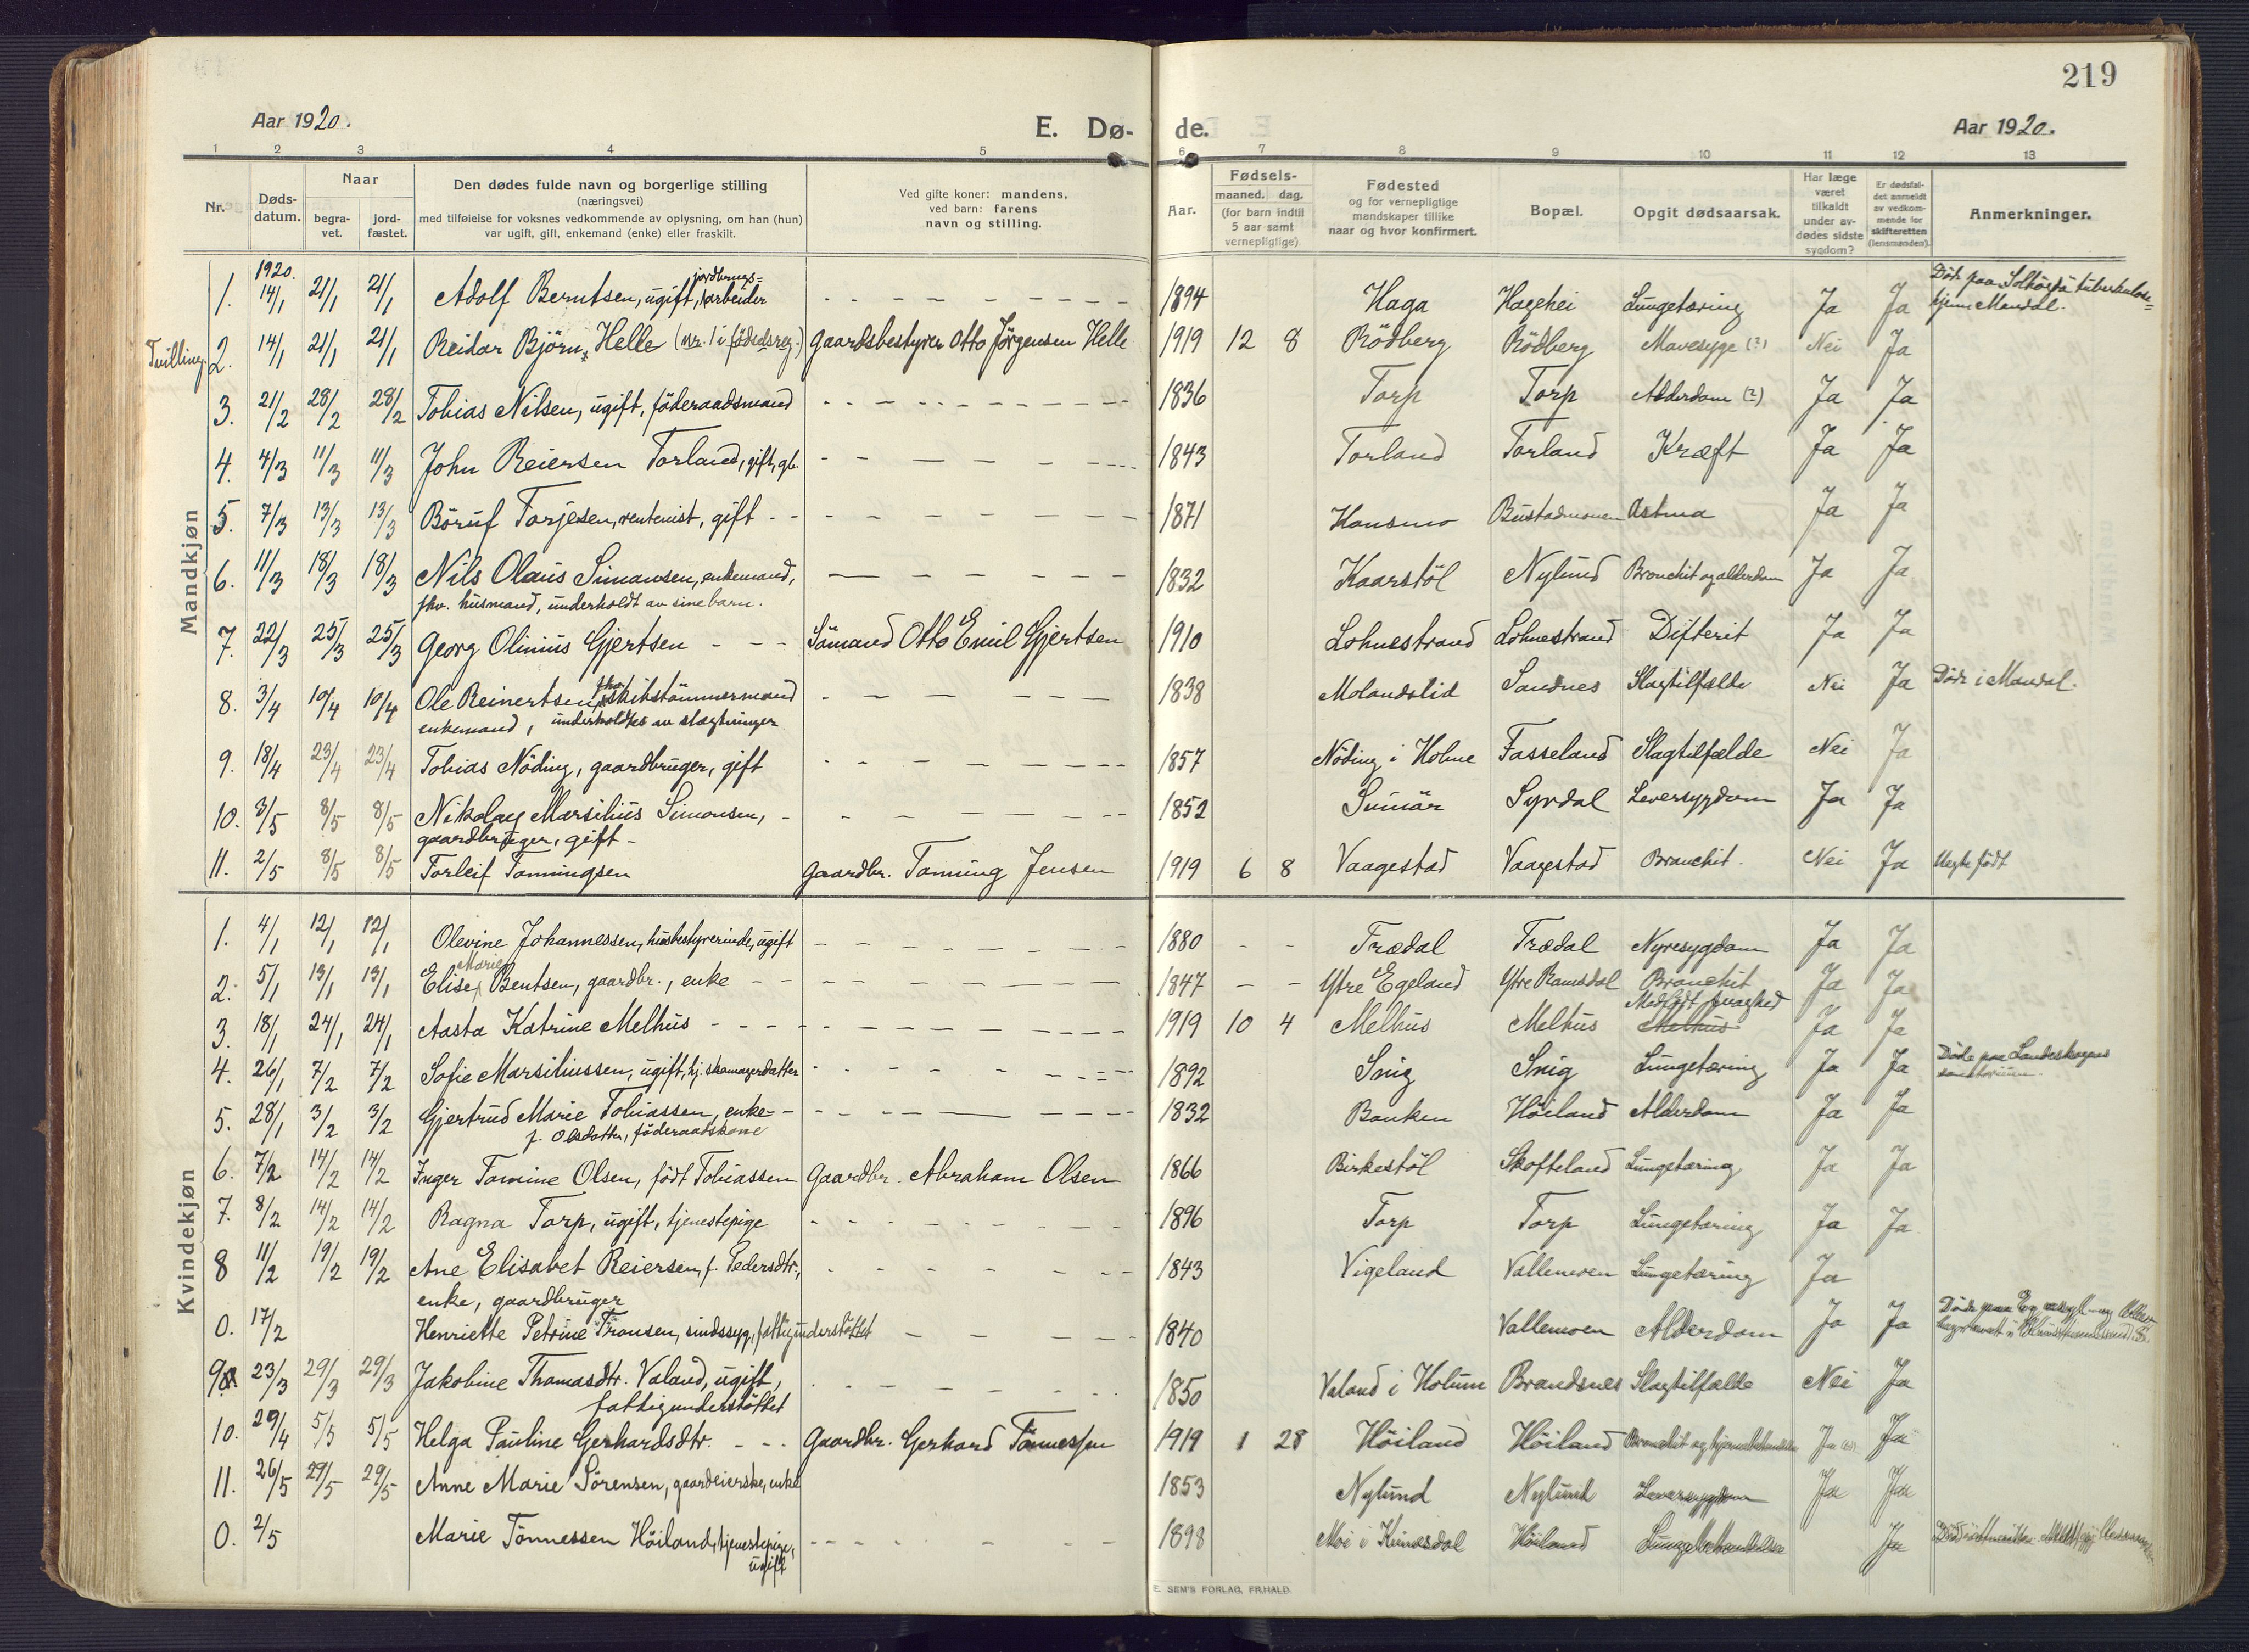 219
Aar 1920.
E. Dø-
de.
Aar 1920.
1 2 3 4 5 6 7 8 9 10 11 12 13
Nr.
Døds-
datum.
Naar
begra-
vet.
jord-
fæstet.
Den dødes fulde navn og borgerlige stilling
(næringsvei)
med tilføielse for voksnes vedkommende av oplysning, om han (hun)
var ugift, gift, enkemand (enke) eller fraskilt.
Ved gifte koner: mandens,
ved barn: farens
navn og stilling.
Aar.
Fødsels-
maaned. dag.
(for barn indtil
5 aar samt
vernepligtige)
Fødested
og for vernepligtige
mandskaper tillike
naar og hvor konfirmert.
Bopæl.
Opgit dødsaarsak.
Har læge
været
tilkaldt
under av-
dødes sidste
sygdom?
Er dødsfal-
det anmeldt
av vedkom-
mende for
skifteretten
(lensmanden).
Anmerkninger.
Mandkjøn
1920.
1. 14/1 21/1 21/1 Adolf Berntsen, ugift, jordbrugs-arbeider 1894 Haga Hagehei Lungetæring Ja Ja Döde paa Solhögda tuberkulose-
hjem Mandal.
Tvilling 2. 14/1 21/1 21/1 Reidar Björn Helle (nr. 1 i fødselsreg.) Gaardsbestyrer Otto Jörgensen Helle 1919 12 8 Rödberg Rödberg Mavesyge (?) Nei Ja
3. 21/2 28/2 28/2 Tobias Nilsen, ugift, föderaadsmand 1836 Torp Torp Alderdom (?) Ja Ja
4. 4/3 11/3 11/3 John Reiersen Torland, gift, gb. 1843 Torland Torland Kræft Ja Ja
5. 7/3 13/3 13/3 Böruf Torjesen, rentenist, gift 1871 Hansmo Bustadmoen Astma Ja Ja
6. 11/3 18/3 18/3 Nils Olaus Simonsen, enkemand, 1832 Kaarstöl Nylund Bronchit og alderdom Ja Ja
fhv. husmand, underholdt av sine barn.
7. 22/3 25/3 25/3 Georg Olinius Gjertsen Sömand Otto Emil Gjertsen 1910 Lohnestrand Lohnestrand Difterit Ja Ja
8. 3/4 10/4 10/4 Ole Reinertsen, fhv. skibstömmermand 1838 Molandslid Sandnes Slagtilfælde Nei Ja Döde i Mandal.
enkemand, underholdtes av slægtninger
9. 18/4 23/4 23/4 Tobias Nöding, gaardbruger, gift 1857 Nöding i Holme Fasseland Slagtilfælde Nei Ja
10. 3/5 8/5 8/5 Nikolay Marsilius Simonsen, 1852 Syrdal Leversygdom Ja Ja
gaardbruger, gift
11. 2/5 8/5 8/5 Torleif Tønningsen Gaardbr. Tønning Jensen 1919 6 8 Vaagestad Vaagestad Bronchit. Nei Ja Uegte födt
Kvindekjøn
1. 4/1 12/1 12/1 Olevine Johannessen, husbestyrerinde, ugift 1880 Trædal Trædal Nyresygdom Ja Ja
2. 5/1 13/1 13/1 Elise Marie Bentsen, gaardbr., enke 1847 Ytre Egeland Ytre Ramsdal Bronchit Ja Ja
3. 18/1 24/1 24/1 Aasta Katrine Melhus 1919 10 4 Melhus Melhus Medfödt svaghed Melhus Ja Ja
4. 26/1 7/2 7/2 Sofie Marsiliussen, ugift, hj. skomagerdatter 1892 Snig Snig Lungetæring Ja Ja Döde paa Landeskogens
sanatorium.
5. 28/1 3/2 3/2 Gjertrud Marie Tobiassen, enke 1832 Banken Höiland Alderdom Ja Ja
f. Olsdatter, föderaadskone
6. 7/2 14/2 14/2 Inger Tomine Olsen, födt Tobiassen Gaardbr. Abraham Olsen 1866 Birkestöl Skofteland Lungetæring Ja Ja
7. 8/2 14/2 14/2 Ragna Torp, ugift, tjenestepige 1896 Torp Torp Lungetæring Ja Ja
8 11/2 19/2 19/2 Ane Elisabet Reiersen, f. Pedersdtr., 1843 Vigeland Vallemoen Lungetæring Ja
enke, gaardbruger
0. 17/2 Henriette Petrine Fransen, sindssyg, fattigunderstöttet 1840 Vallemoen Alderdom Ja Ja Döde paa Eg asyl og
9. 23/3 29/3 29/3 Jakobine Thomasdtr. Valand, ugift, 1850 Valand i Holum Brandsnes Slagtilfælde Nei Ja
fattigunderstöttet
10. 29/4 5/5 5/5 Helga Pauline Gerhardsdtr. Gaardbr. Gerhard Tönnessen 1919 1 28 Höiland Höiland Bronchit og Ja Ja
11. 26/5 29/5 29/5 Anne Marie Sörensen, gaardeierske, enke 1853 Nylund Nylund Leversygdom Ja Ja
0. 2/5 Marie Tönnessen Höiland, tjenestepige, 1898 Moi i Kvinesdal Höiland Ja
ugift
E. SEM'S FORLAG, FR.HALD.